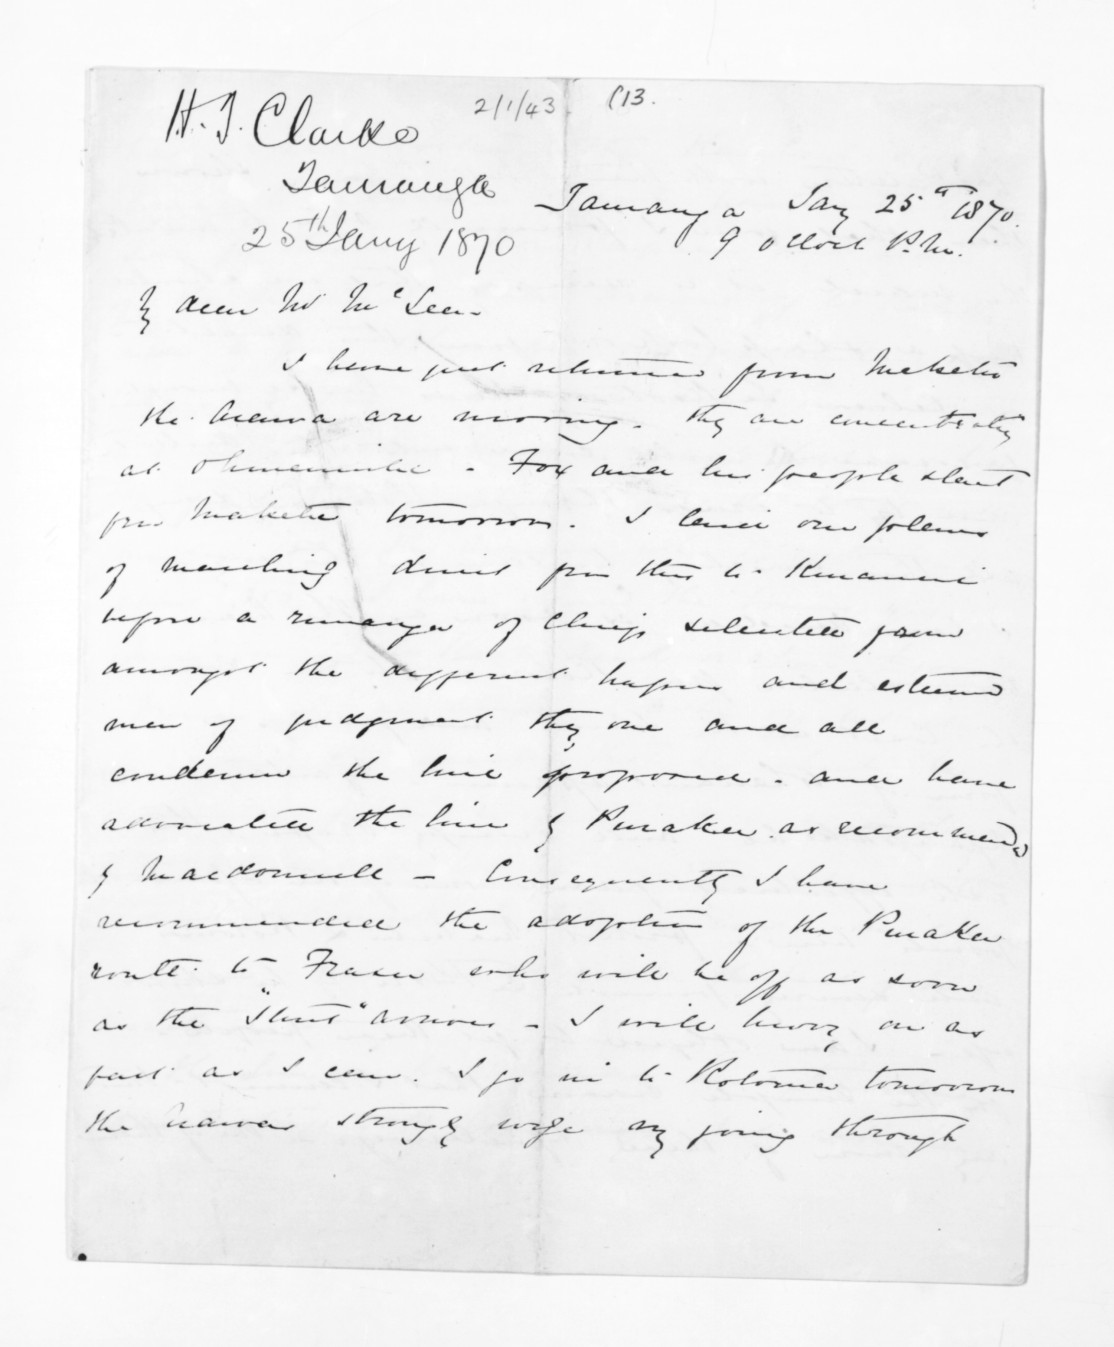 H. T. Clarke
2/1/43 (13.
Tauranga
25th Jany 1870
Tauranga Jany 25th 1870.
9 o'clock P.M.
My dear Mr McLean
I have just returned from Maketu
the Arawa are moving. they are concentrating
at Ohinemutu - Fox and his people start
from Maketu tomorrow. I laid our plans
of marching direct from this to
before a runanga of Chiefs selected from
amongst the different hapus and esteemed
men of judgment they one and all
condemn the line proposed - and have
advocated the line by Puraka as recommended
by Macdonnell - Consequently I have
recommended the adoption of the Puraka
route to Fraser who will be off as soon
as the "Sturt" arrives - I will hurry on as
fast as I can. I go in to Rotorua tomorrow
the Arawas strongly urge my going through